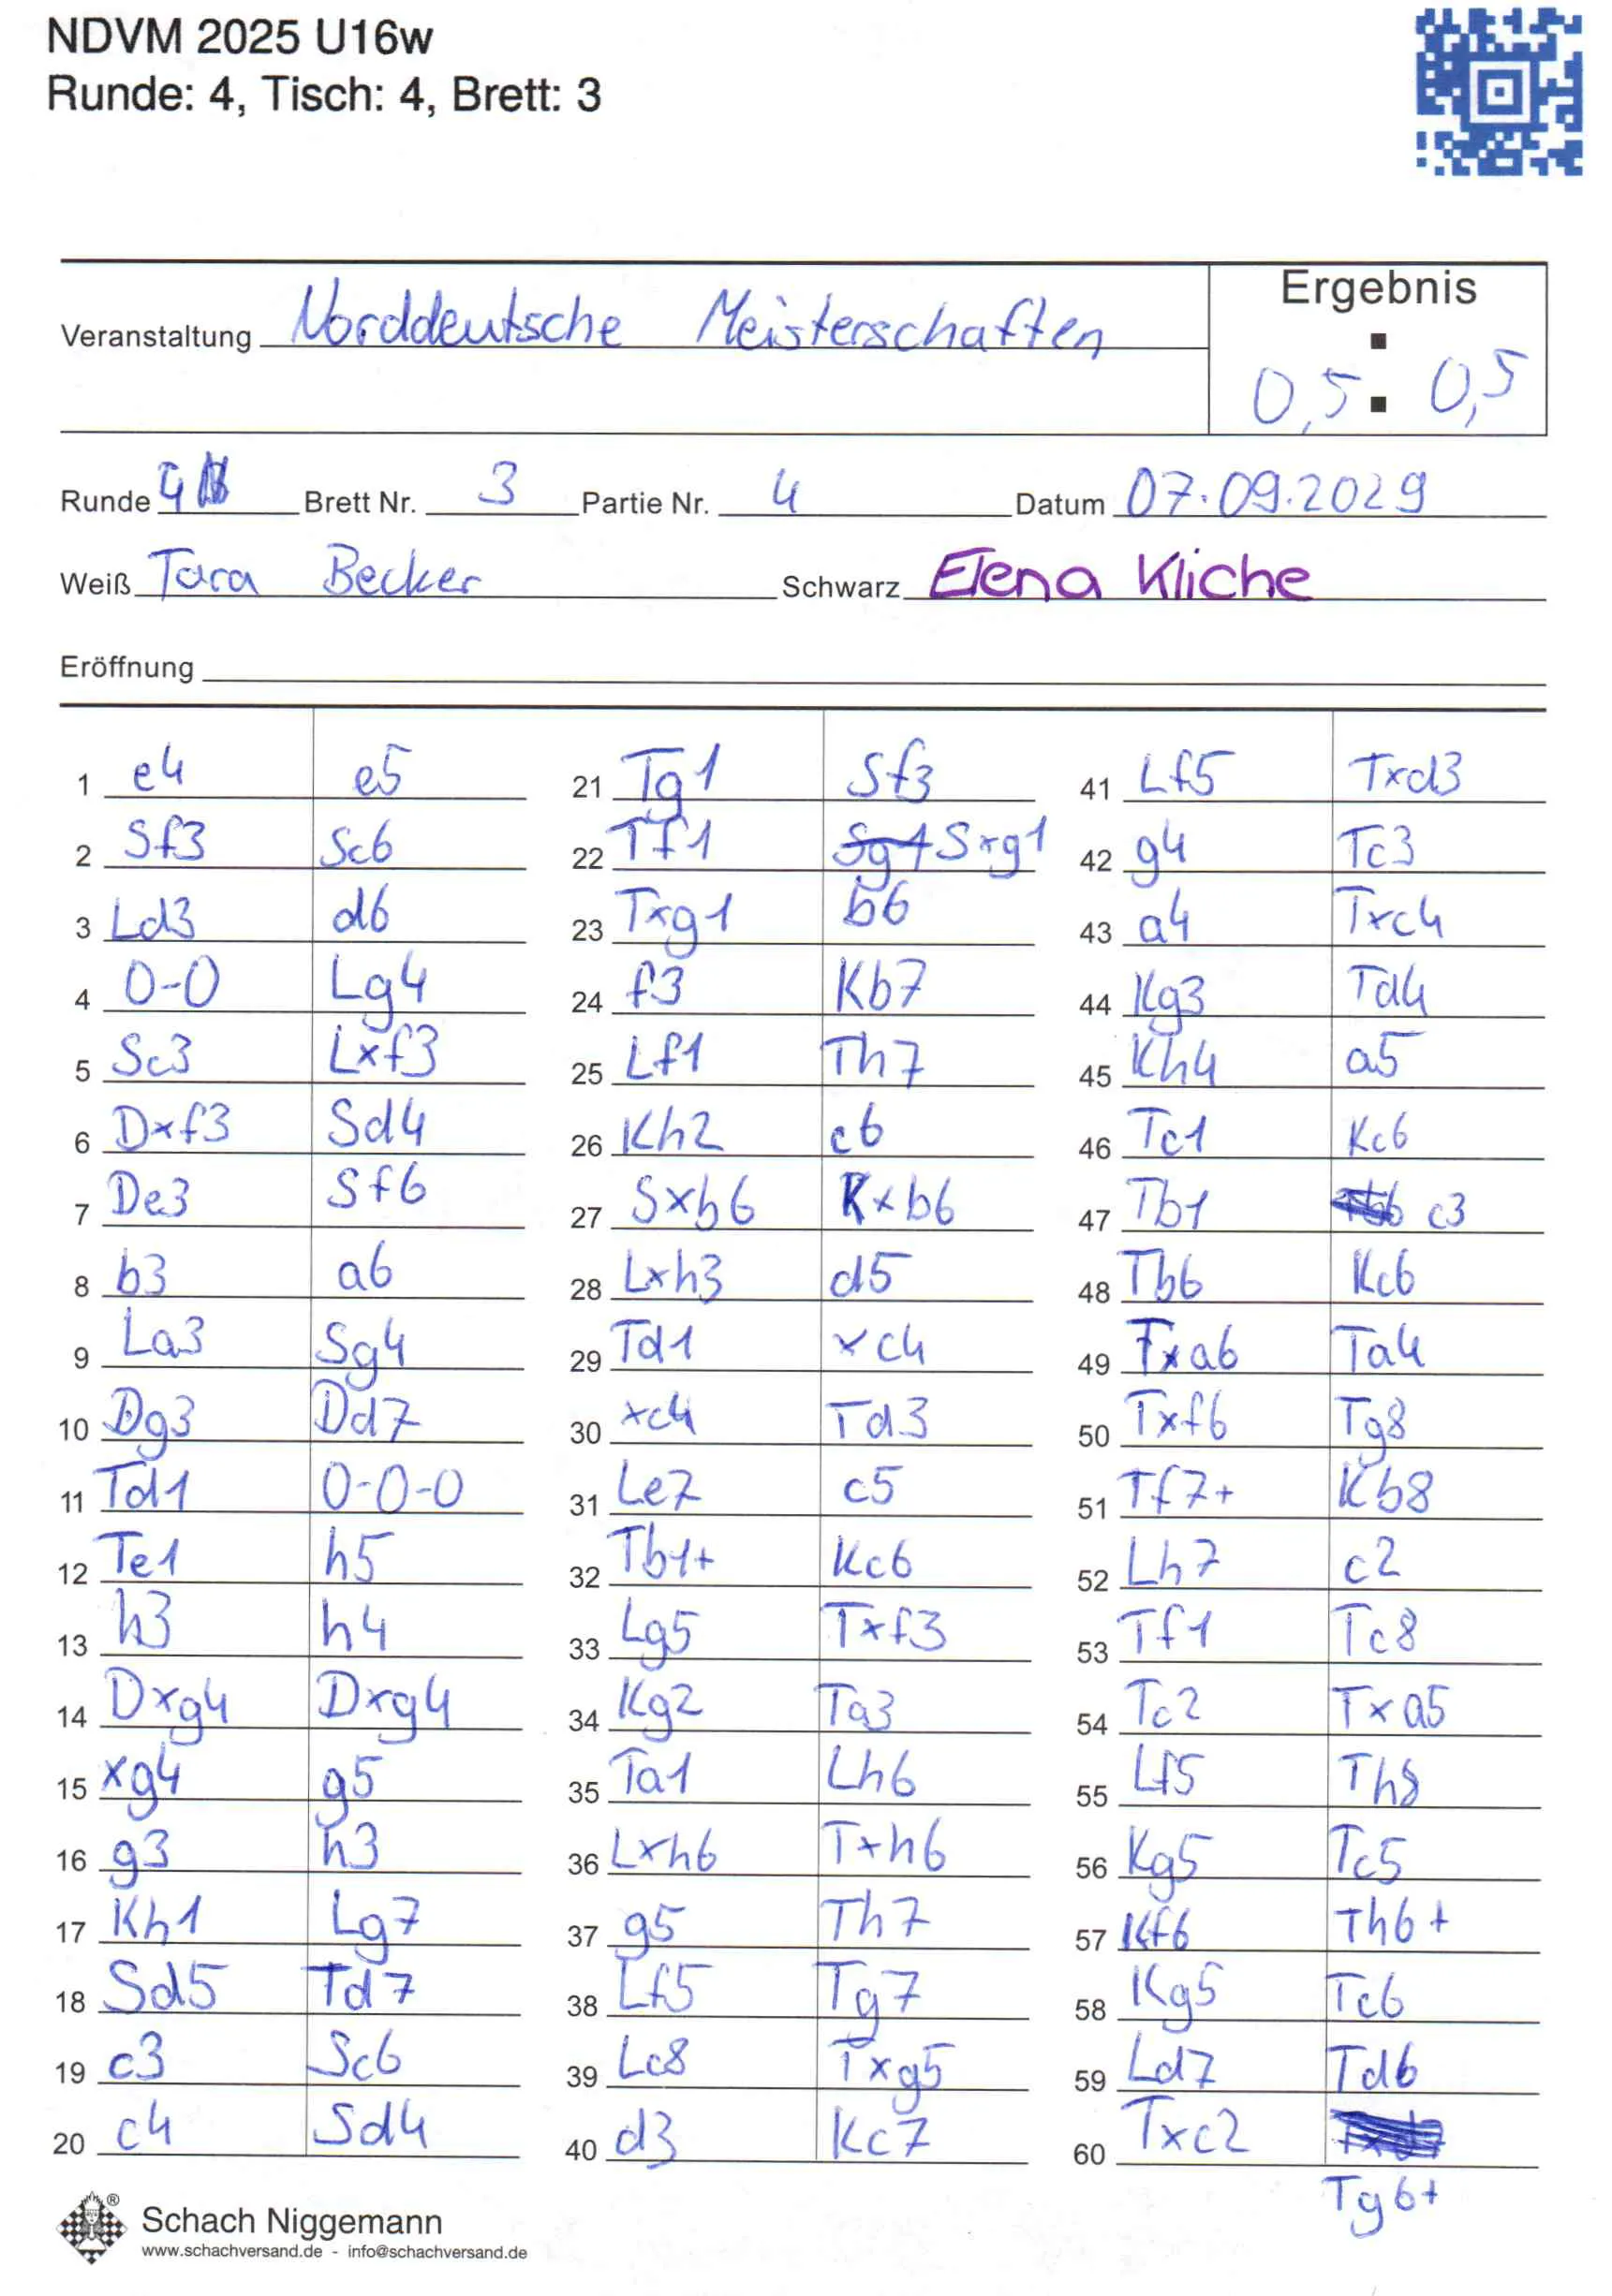 NDVM 2025 U16w
Runde: 4, Tisch: 4, Brett: 3
Ergebnis
Veranstaltung Norddeutsche Meisterschaften
0,5 : 0,5
Runde 4 Brett Nr. 3 Partie Nr. 4 Datum 07.09.2029
Weiß Tara Becker Schwarz Elena Kliche
Eröffnung
1 e4 e5
2 Sf3 Sc6
3 Ld3 d6
4 0-0 Lg4
5 Sc3 Lxf3
6 Dxf3 Sd4
7 De3 Sf6
8 b3 a6
9 La3 Sg4
10 Dg3 Dd7
11 Td1 0-0-0
12 Te1 h5
13 h3 h4
14 Dxg4 Dxg4
15 xg4 g5
16 g3 h3
17 Kh1 Lg7
18 Sd5 Td7
19 c3 Sc6
20 c4 Sd4
21 Tg1 Sf3
22 Tf1 Sg1 Sxg1
23 Txg1 b6
24 f3 Kb7
25 Lf1 Th7
26 Kh2 c6
27 Sxb6 Kxb6
28 Lxh3 d5
29 Td1 xc4
30 xc4 Td3
31 Le7 c5
32 Tb1+ Kc6
33 Lg5 Txf3
34 Kg2 Ta3
35 Ta1 Lh6
36 Lxh6 Txh6
37 g5 Th7
38 Lf5 Tg7
39 Lc8 Txg5
40 d3 Kc7
41 Lf5 Txd3
42 g4 Tc3
43 a4 Txc4
44 Kg3 Td4
45 Kh4 a5
46 Tc1 Kc6
47 Tb1 c3
48 Tb6 Kc6
49 Txa6 Ta4
50 Txf6 Tg8
51 Tf7+ Kb8
52 Lh7 c2
53 Tf1 Tc8
54 Tc2 Txa5
55 Lf5 Th8
56 Kg5 Tc5
57 Kf6 Th6+
58 Kg5 Tc6
59 Ld7 Td6
60 Txc2
Tg6+
Schach Niggemann
www.schachversand.de - info@schachversand.de